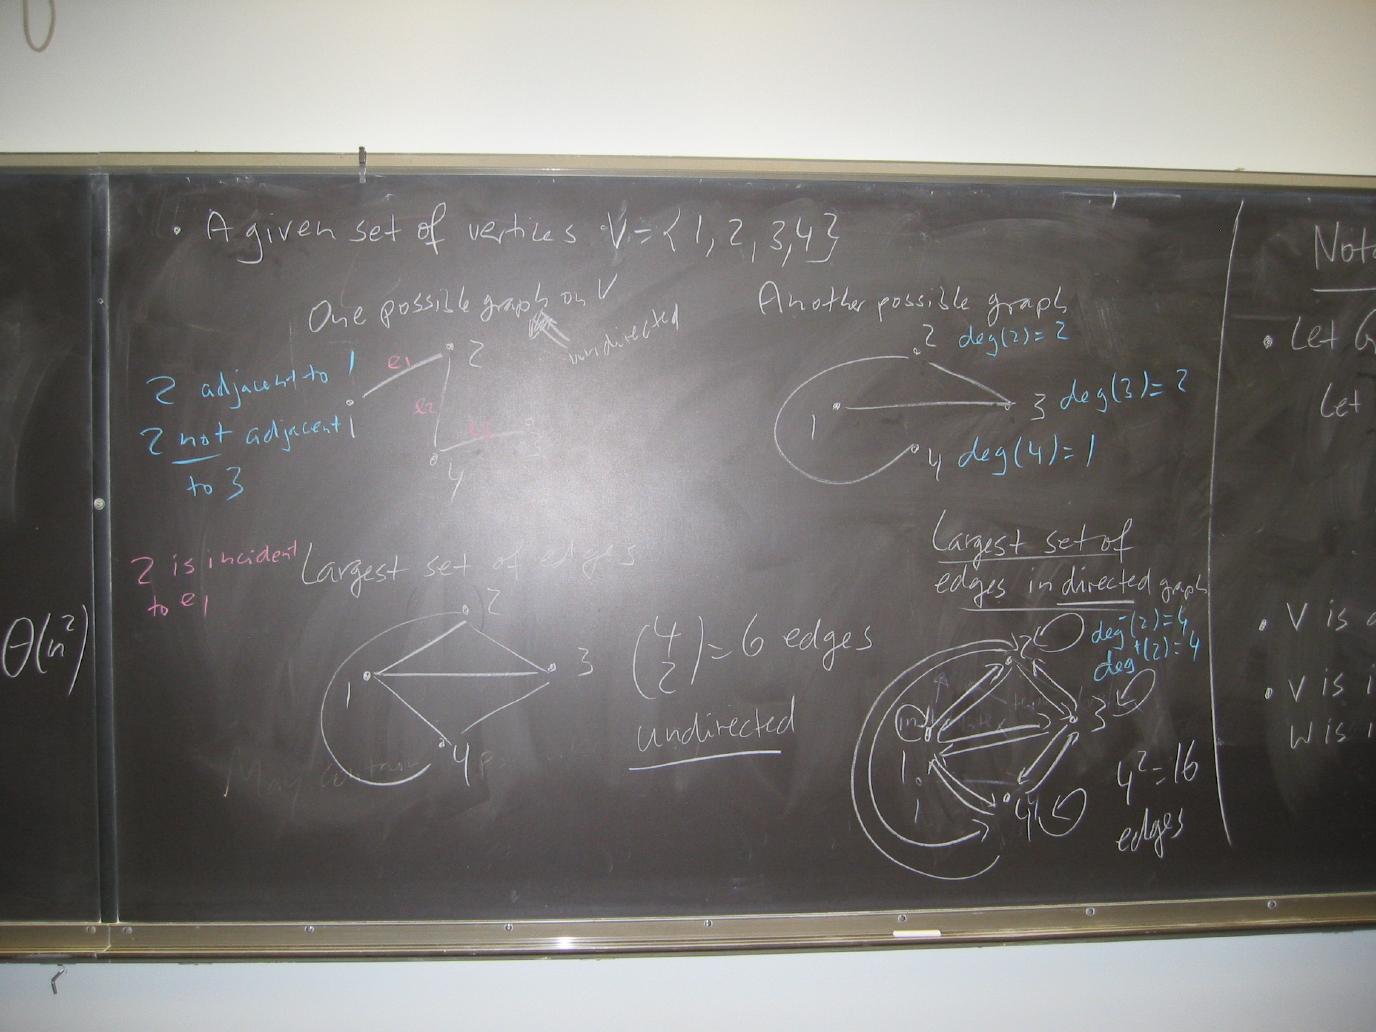 • A given set of vertices V = {1, 2, 3, 4}
One possible graph on V
undirected
2 adjacent to 1
2 not adjacent
to 3
e1
2
1
e2
e3
3
4
Another possible graph
2 deg(2) = 2
1
3 deg(3) = 2
4 deg(4) = 1
2 is incident
to e1
Largest set of edges
2
1
3
4
(4 2) = 6 edges
undirected
Largest set of
edges in directed graph
2
deg⁻(2) = 4
deg⁺(2) = 4
in
1
3
4
1
4² = 16
edges
θ(n²)
• Let G
Let
• V is
• V is i
W is i